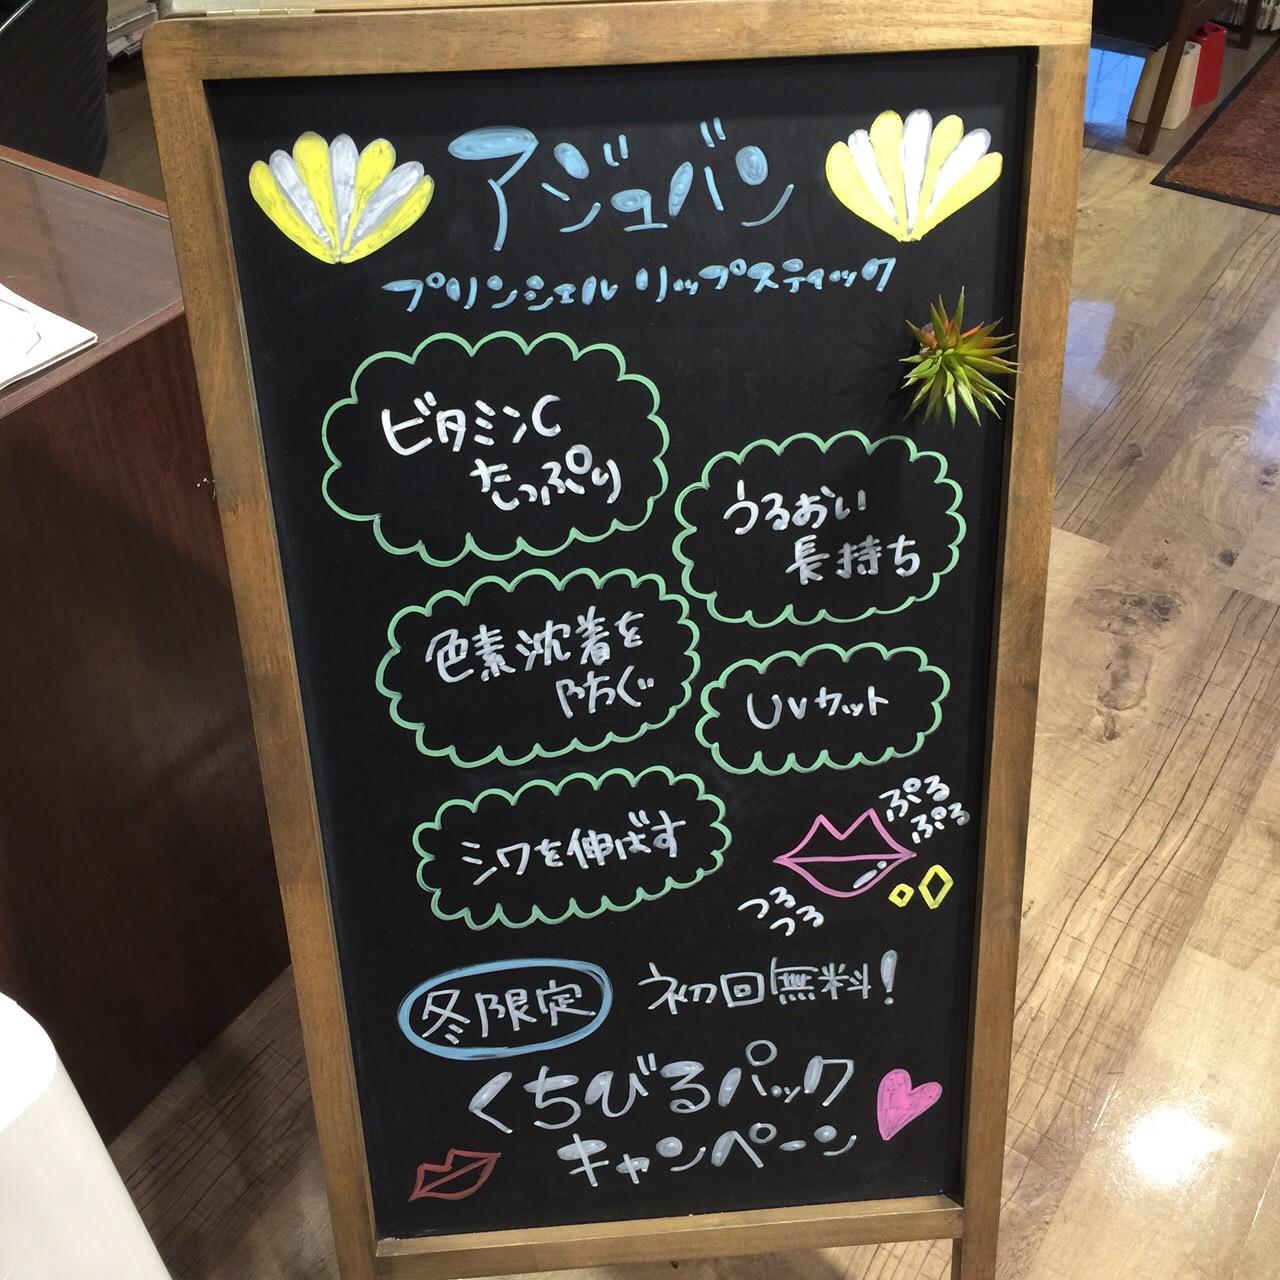 アジュバン
プリンシェル リップスティック
ビタミンC
たっぷり
うるおい
長持ち
色素沈着を
防ぐ
UVカット
シワを伸ばす
ぷる
ぷる
つる
つる
冬限定
初回無料!
くちびるパック
キャンペーン